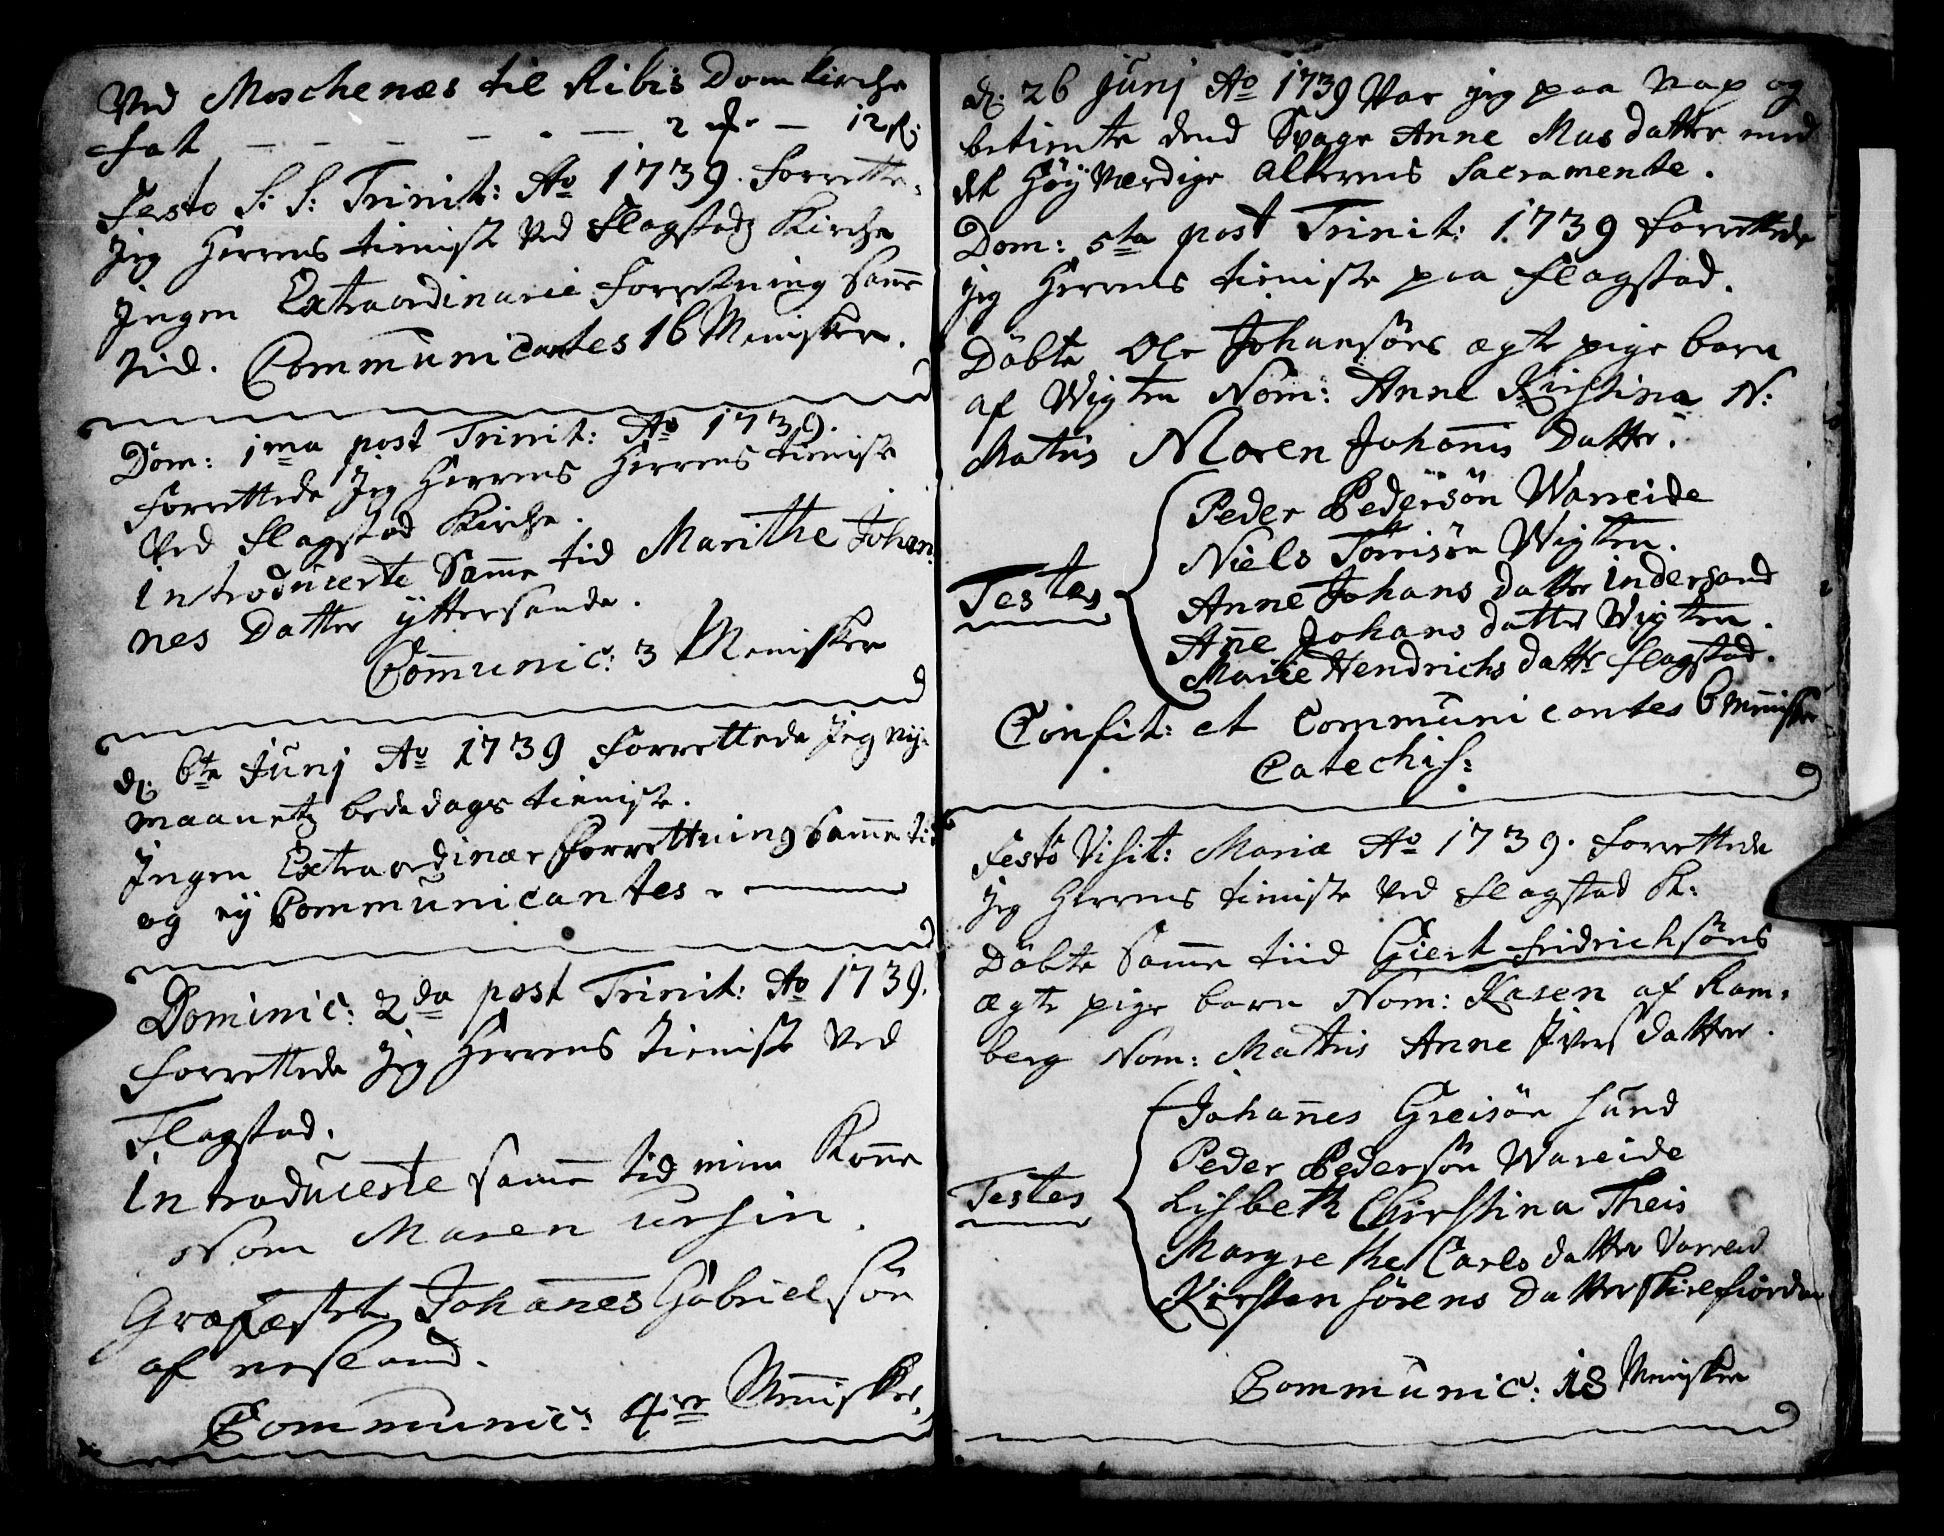 Ved Moschenæs til Ribis Domkirche
fat — — — — 2 — 12 ß
Festo S: S: Trinit: Ao 1739. forrette-
Jeg Herrens tieniste Ved Flagstad Kirche
Ingen Extraordinarie forretning Samme
tid. Communicantes 16 Mennisker.
Dom: 1ma post Trinit: Ao 1739.
forrettede Jeg Herrens Herrens tieniste
Ved Flagstad Kirche.
Introducerte Samme tid Marithe Johan-
nes Datter yttersande.
Communic: 3 Mennisker
d. 6te Junj Ao 1739 forrettede Jeg nye
maanetz bededags tieniste.
Ingen Extraordinær forrettning Samme tid
og ey Communicantes
Dominic: 2da post Trinit: Ao 1739.
forrettede Jeg Herrens tieniste Ved
Flagstad.
Introducerte Samme tid min Kone
Nom Maren Ursin.
Grafæstet Johannes Gabrielsön
af nesland.
Communic: 4re Mennisker.
d. 26 Junj Ao 1739 Var jeg paa Nap og
betiente dend Svage Anne Mus datter med
det HöyVærdige Alterens Sacramente.
Dom: 5ta post Trinit: 1739 forrettede
jeg Herrens tieniste paa Flagstad.
Döbte Ole Johansöns ægte pige barn
af Wigten Nom: Anne Kirstina N:
Matris Maren Johannis Datter.
Peder Pedersön Wareide
Niels Törrisön Wigten.
Testes
Anne Johans datter indersand
Anne Johans datter Wigten.
Marie Hendrichs datter flagstad.
Confit: et Communicantes 6 Mennisker
Catechis:
Festo Visit: Mariæ Ao 1739. forrettede
jeg Herrens tieniste Ved Flagstad K:
Döbte Samme tiid Giert fridrichsöns
ægte pige barn Nom: Karen af Ram-
berg Nom: Matris Anne Ivers datter.
Johannes Greisön Sund
Peder Pedersön Wareide
Testes
Lisbeth Christina Theis
Margrethe Carls datter Vareid
Kirsten Sörens datter Skielfiorden
Communic: 18 Mennisker